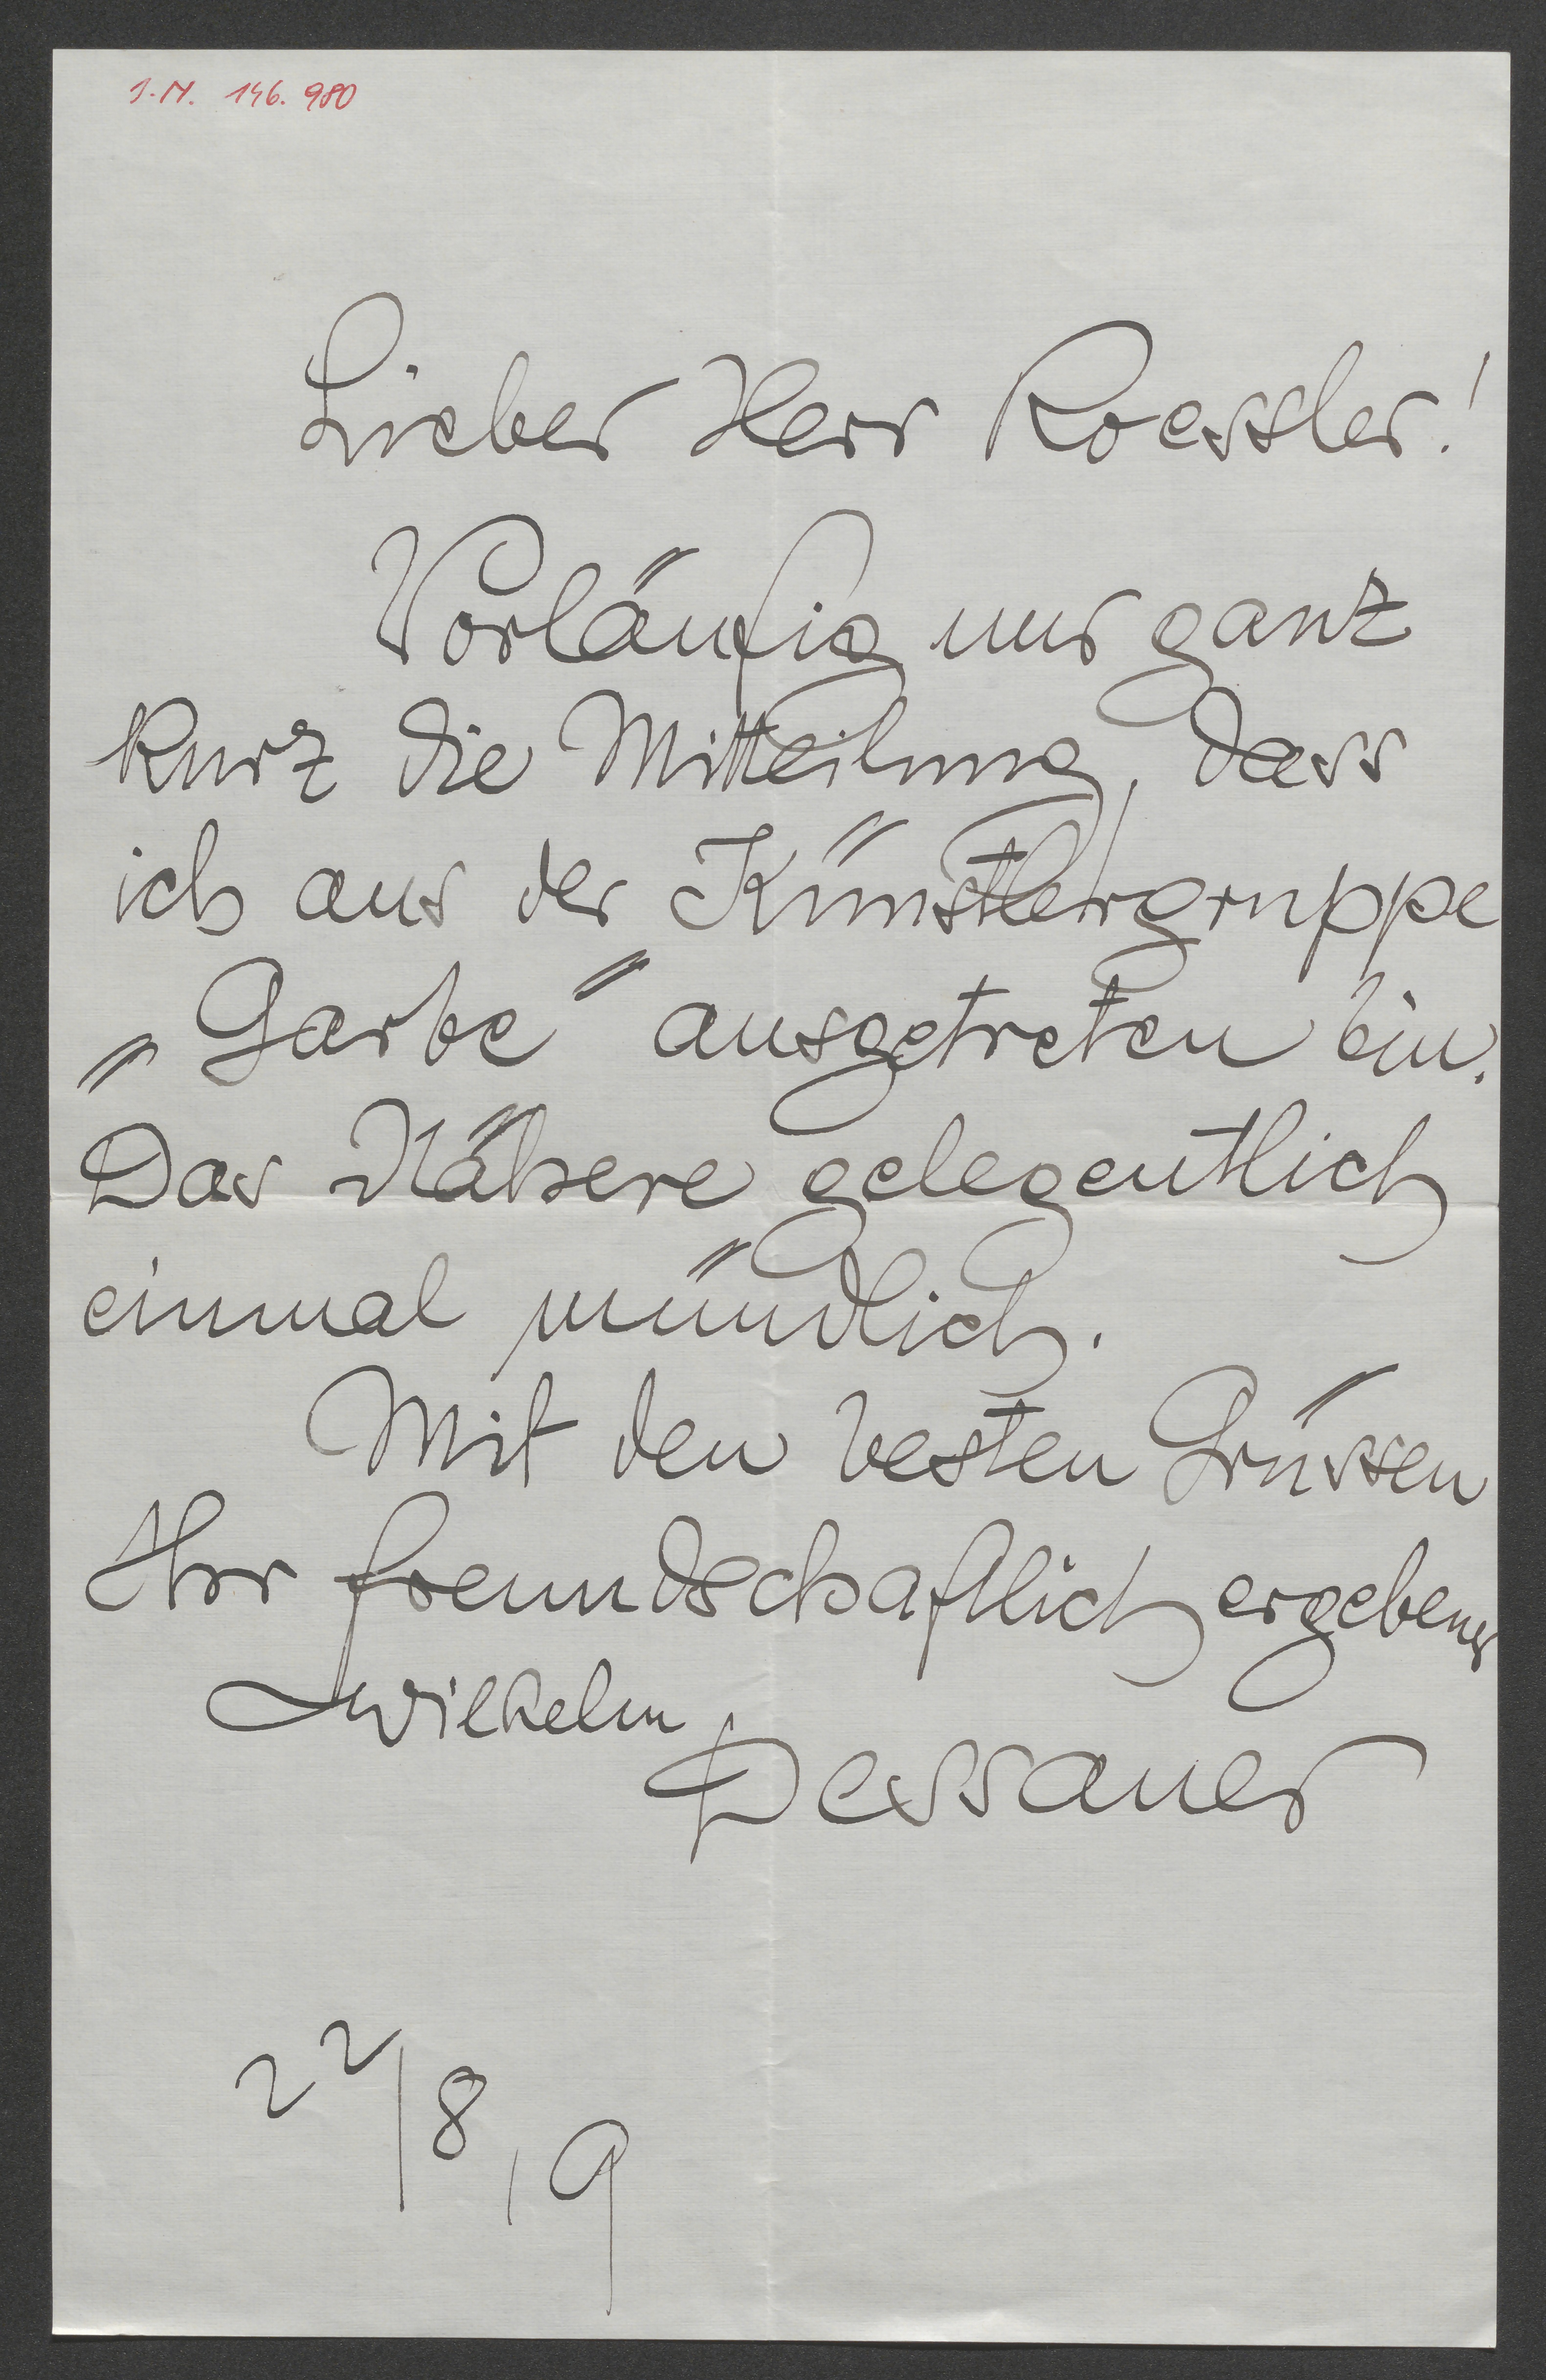 J.N. 146.980
Lieber Herr Roessler!
Vorläufig nur ganz
kurz die Mitteilung, dass
ich aus der Künstlergruppe
„Garbe" ausgetreten bin.
Das Nähere gelegentlich
einmal mündlich.
Mit den besten Grüssen
Ihr freundschaftlich ergebener
Wilhelm
Dessauer
22/8 19